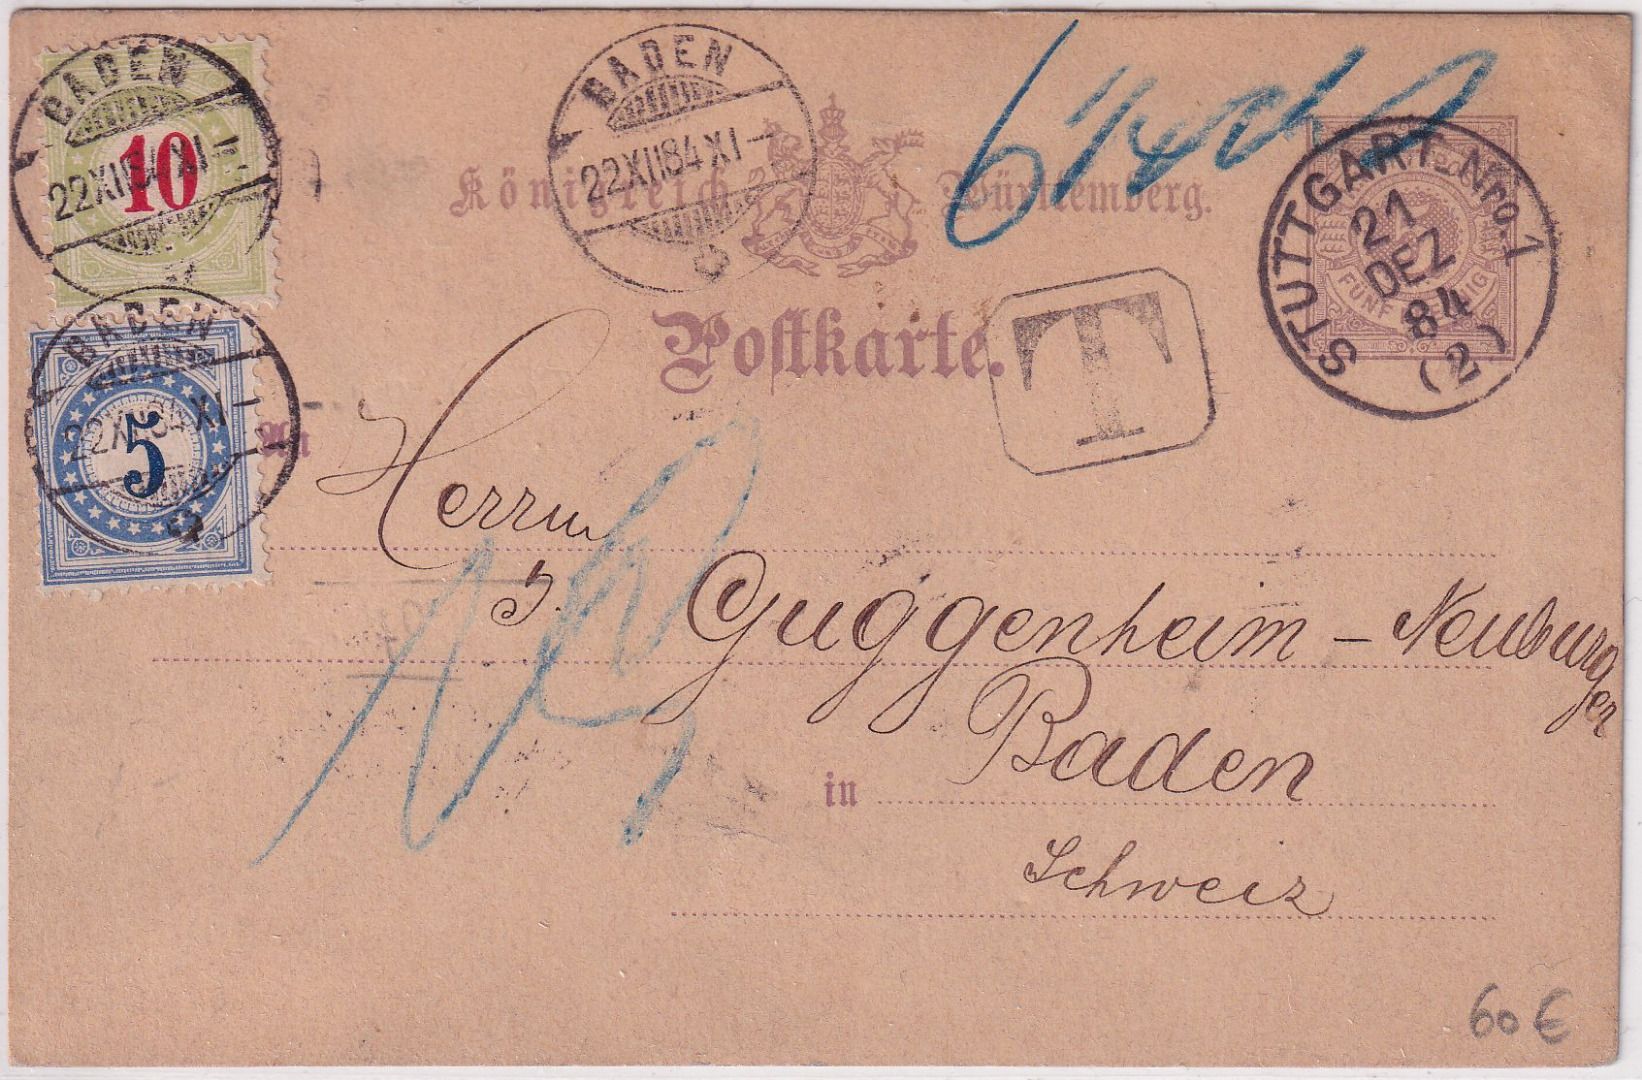 BADEN
22 XII 84 XI
10
BADEN
22 XII 84 XI
5
BADEN
22 XII 84 XI
Königreich Württemberg.
STUTTGART No. 1
21
DEZ
84
(2)
FÜNF PFENNIG
Postkarte.
T
An
Herrn
J. Guggenheim - Neuburger
in Baden
Schweiz
15
60 €